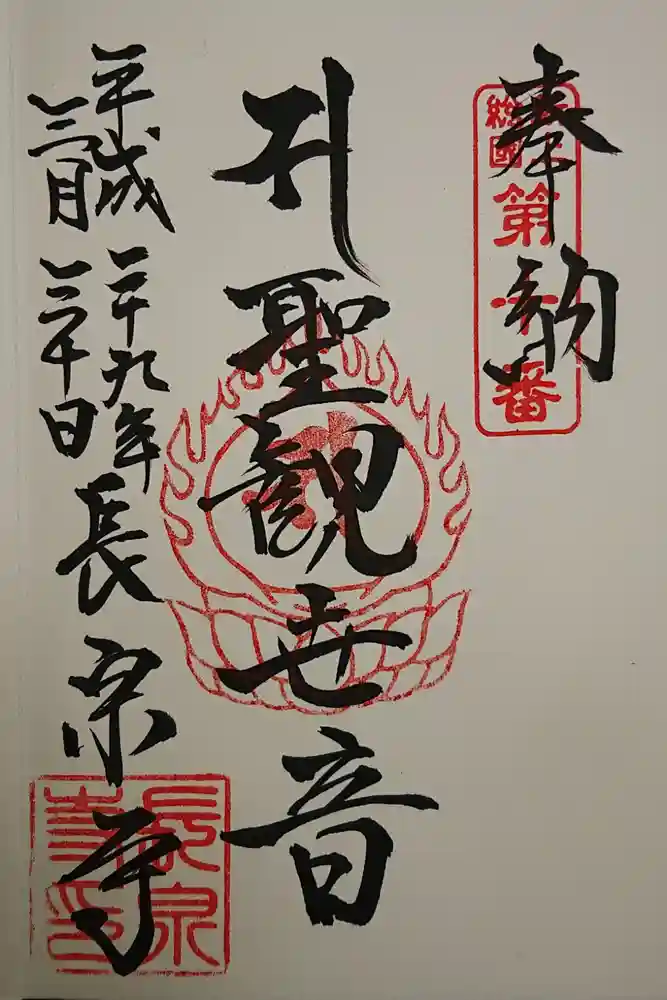 奉納
総國
第十番
聖観世音
平成二十九年
三月三十日
長泉寺
長泉寺印